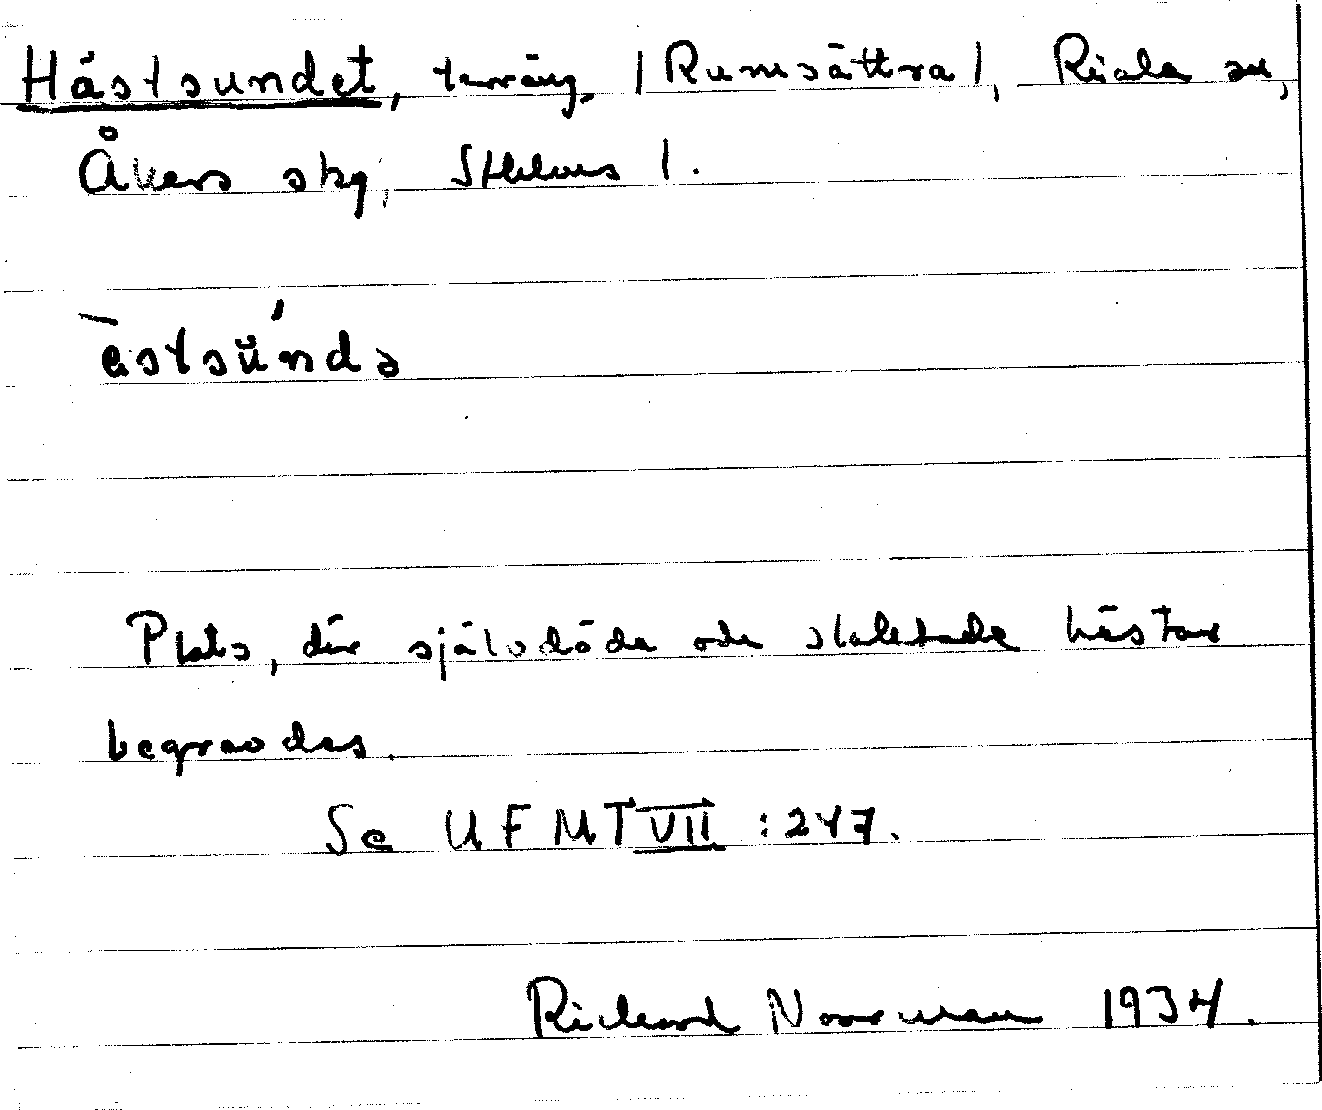 Hästsundet, terräng, /Rumsättra/, Riala sn,
Åkers skg, Sthlms l.
èstsúndə
Plats, där självdöda och slaktade hästar
begravdes.
Se UFMT VII :247.
Richard Norrman 1934.